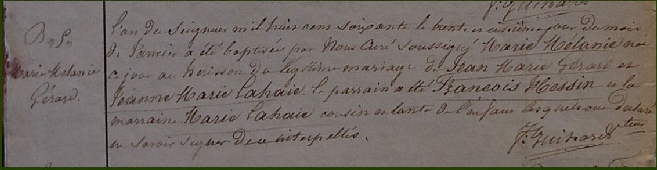 Marie Melanie
Gérard.
l'an du Seigneur mil huit cent soixante le trente et unième jour du mois
de Janvier a été baptisée par Nous Curé Soussigné Marie Mélanie née
ce jour au hérisson du légitime mariage de Jean Marie Gérard et
Jeanne Marie Lahaie. le parrain a été François Hessin et la
marraine Marie Lahaie cousin et tante de l'enfant lesquels ont déclaré
ne savoir signer de ce interpellés.